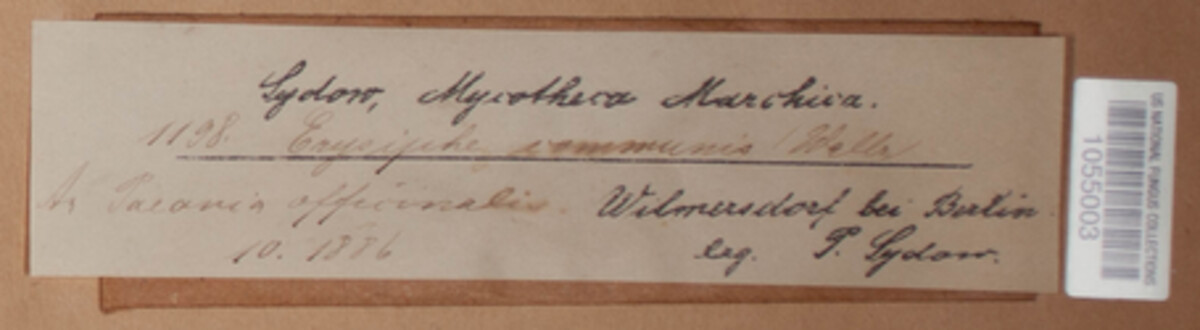 Sydow, Mycotheca Marchica.
1198. Erysiphe communis (Wallr
An Paeonia officinalis. Wilmersdorf bei Berlin
10. 1886 leg. P. Sydow.
US NATIONAL FUNGUS COLLECTIONS
1055003